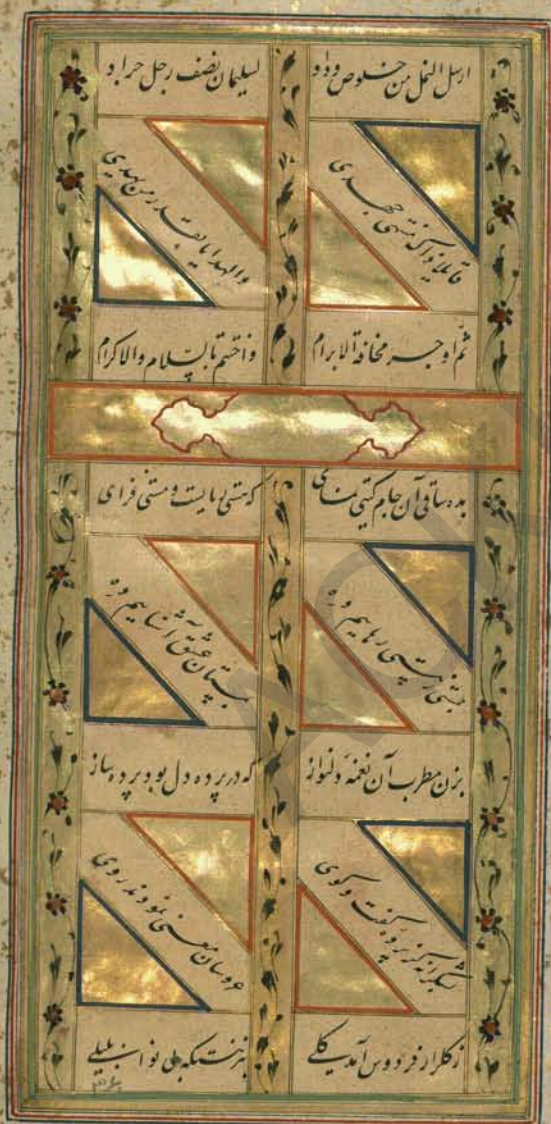 ارسل النمل من خلوص وداد
لسلیمان نصف رجل جراد
قایلا ذاک منتهی جهدی
والهدایا بقدر من یهدی
ثم اوجز مخافة الابرام
واختتم بالسلام والاکرام
بده ساقی آن جام کیتی نمای
که هستی ربایست و مستی فزای
بمستی ز هستی رهاییم ده
بمستان عشق آشناییم ده
بزن مطرب آن نغمهٔ دلنواز
که در پرده دل بود پرده ساز
بشکرانه کز پرده کفت و کوی
عروسان معنی نمودند روی
ز کلزار فردوس آمد کلی
بلبلی